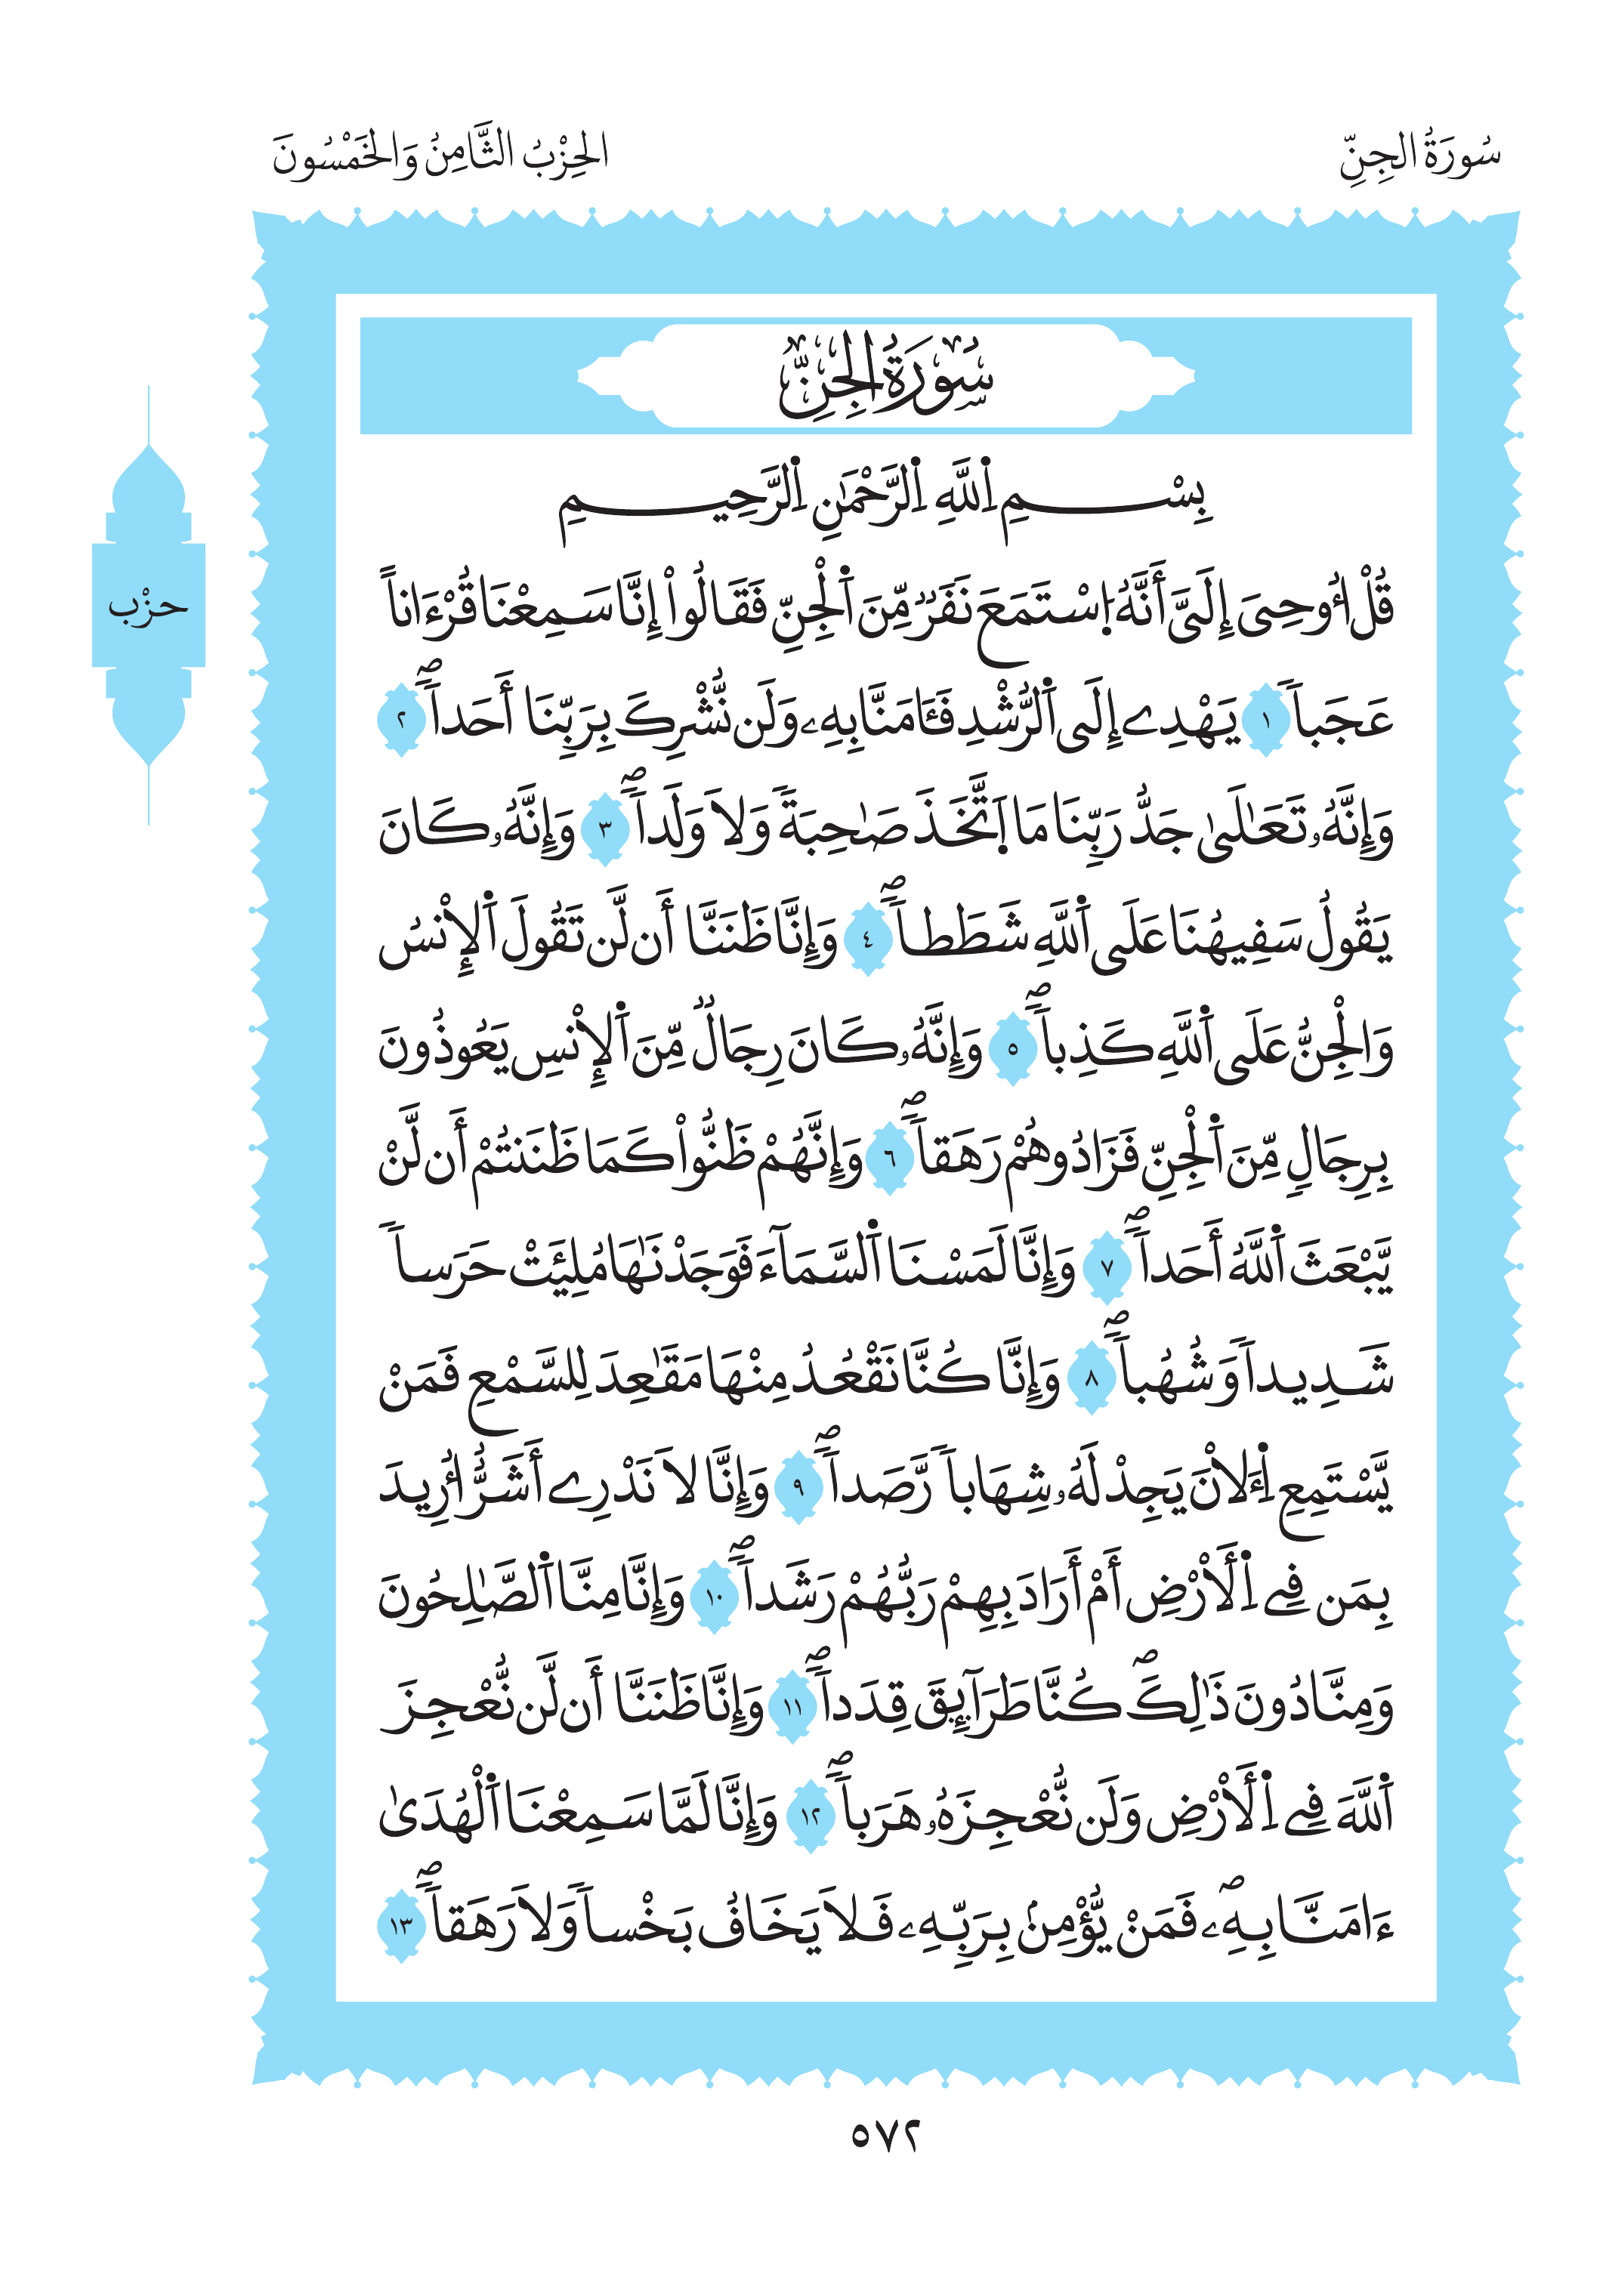 سُورَةُ الجِنِّ
الحِزْبُ الثَّامِنُ وَالخَمْسُونَ
سُورَةُ الجِنِّ
بِسْمِ اِ۬للَّهِ اِ۬لرَّحْمَٰنِ اِ۬لرَّحِيمِ
حزْب
قُلْ أُوحِىَ إِلَىَّ أَنَّهُ اُ۪سْتَمَعَ نَفَرٞ مِّنَ اَ۬لْجِنِّ فَقَالُوٓاْ إِنَّا سَمِعْنَا قُرْءَاناً
عَجَباٗ ١ يَهْدِےٓ إِلَى اَ۬لرُّشْدِ فَـَٔامَنَّا بِهِۦ وَلَن نُّشْرِكَ بِرَبِّنَا أَحَداٗۖ ٢
وَإِنَّهُۥ تَعَٰلَىٰ جَدُّ رَبِّنَا مَا اَ۪تَّخَذَ صَٰحِبَةٗ وَلَا وَلَداٗۖ ٣ وَإِنَّهُۥ كَانَ
يَقُولُ سَفِيهُنَا عَلَى اَ۬للَّهِ شَطَطاٗۖ ٤ وَإِنَّا ظَنَنَّا أَن لَّن تَقُولَ اَ۬لْإِنسُ
وَالْجِنُّ عَلَى اَ۬للَّهِ كَذِباٗۖ ٥ وَإِنَّهُۥ كَانَ رِجَالٞ مِّنَ اَ۬لْإِنسِ يَعُوذُونَ
بِرِجَالٖ مِّنَ اَ۬لْجِنِّ فَزَادُوهُمْ رَهَقاٗۖ ٦ وَإِنَّهُمْ ظَنُّواْ كَمَا ظَنَنتُمْ أَن لَّنْ
يَّبْعَثَ اَ۬للَّهُ أَحَداٗۖ ٧ وَإِنَّا لَمَسْنَا اَ۬لسَّمَآءَ فَوَجَدْنَٰهَا مُلِئَتْ حَرَساٗ
شَدِيداٗ وَشُهُباٗۖ ٨ وَإِنَّا كُنَّا نَقْعُدُ مِنْهَا مَقَٰعِدَ لِلسَّمْعِ فَمَنْ
يَّسْتَمِعِ اِ۬لَانَ يَجِدْ لَهُۥ شِهَاباٗ رَّصَداٗۖ ٩ وَإِنَّا لَا نَدْرِےٓ أَشَرٌّ أُرِيدَ
بِمَن فِے اِ۬لْأَرْضِ أَمْ أَرَادَ بِهِمْ رَبُّهُمْ رَشَداٗۖ ١٠ وَإِنَّا مِنَّا اَ۬لصَّٰلِحُونَ
وَمِنَّا دُونَ ذَٰلِكَۖ كُنَّا طَرَآئِقَ قِدَداٗۖ ١١ وَإِنَّا ظَنَنَّا أَن لَّن نُّعْجِزَ
اَ۬للَّهَ فِے اِ۬لْأَرْضِ وَلَن نُّعْجِزَهُۥ هَرَباٗۖ ١٢ وَإِنَّا لَمَّا سَمِعْنَا اَ۬لْهُدَىٰ
ءَامَنَّا بِهِۦۖ فَمَنْ يُّؤْمِنۢ بِرَبِّهِۦ فَلَا يَخَافُ بَخْساٗ وَلَا رَهَقاٗۖ ١٣
٥٧٢